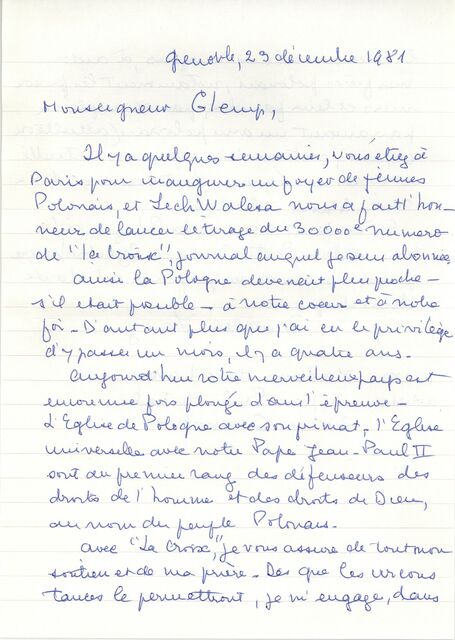 Grenoble, 23 décembre 1981
Monseigneur Glemp,
Il y a quelques semaines, vous étiez à
Paris pour inaugurer un foyer de jeunes
Polonais, et Lech Walesa nous a fait l'hon-
neur de lancer le tirage du 30 000e numéro
de "la Croix", journal auquel je suis abonnée.
Ainsi la Pologne devenait plus proche -
s'il était possible - à notre coeur et à notre
foi - D'autant plus que j'ai eu le privilège
d'y passer un mois, il y a quatre ans.
Aujourd'hui votre merveilleux pays est
encore une fois plongé dans l'épreuve -
L'Eglise de Pologne avec son primat, l'Eglise
universelle avec notre Pape Jean-Paul II
sont au premier rang des défenseurs des
droits de l'homme et des droits de Dieu,
au nom du peuple Polonais.
Avec "La Croix", je vous assure de tout mon
soutien et de ma prière - Dès que les circons
tances le permettront, je m'engage, dans